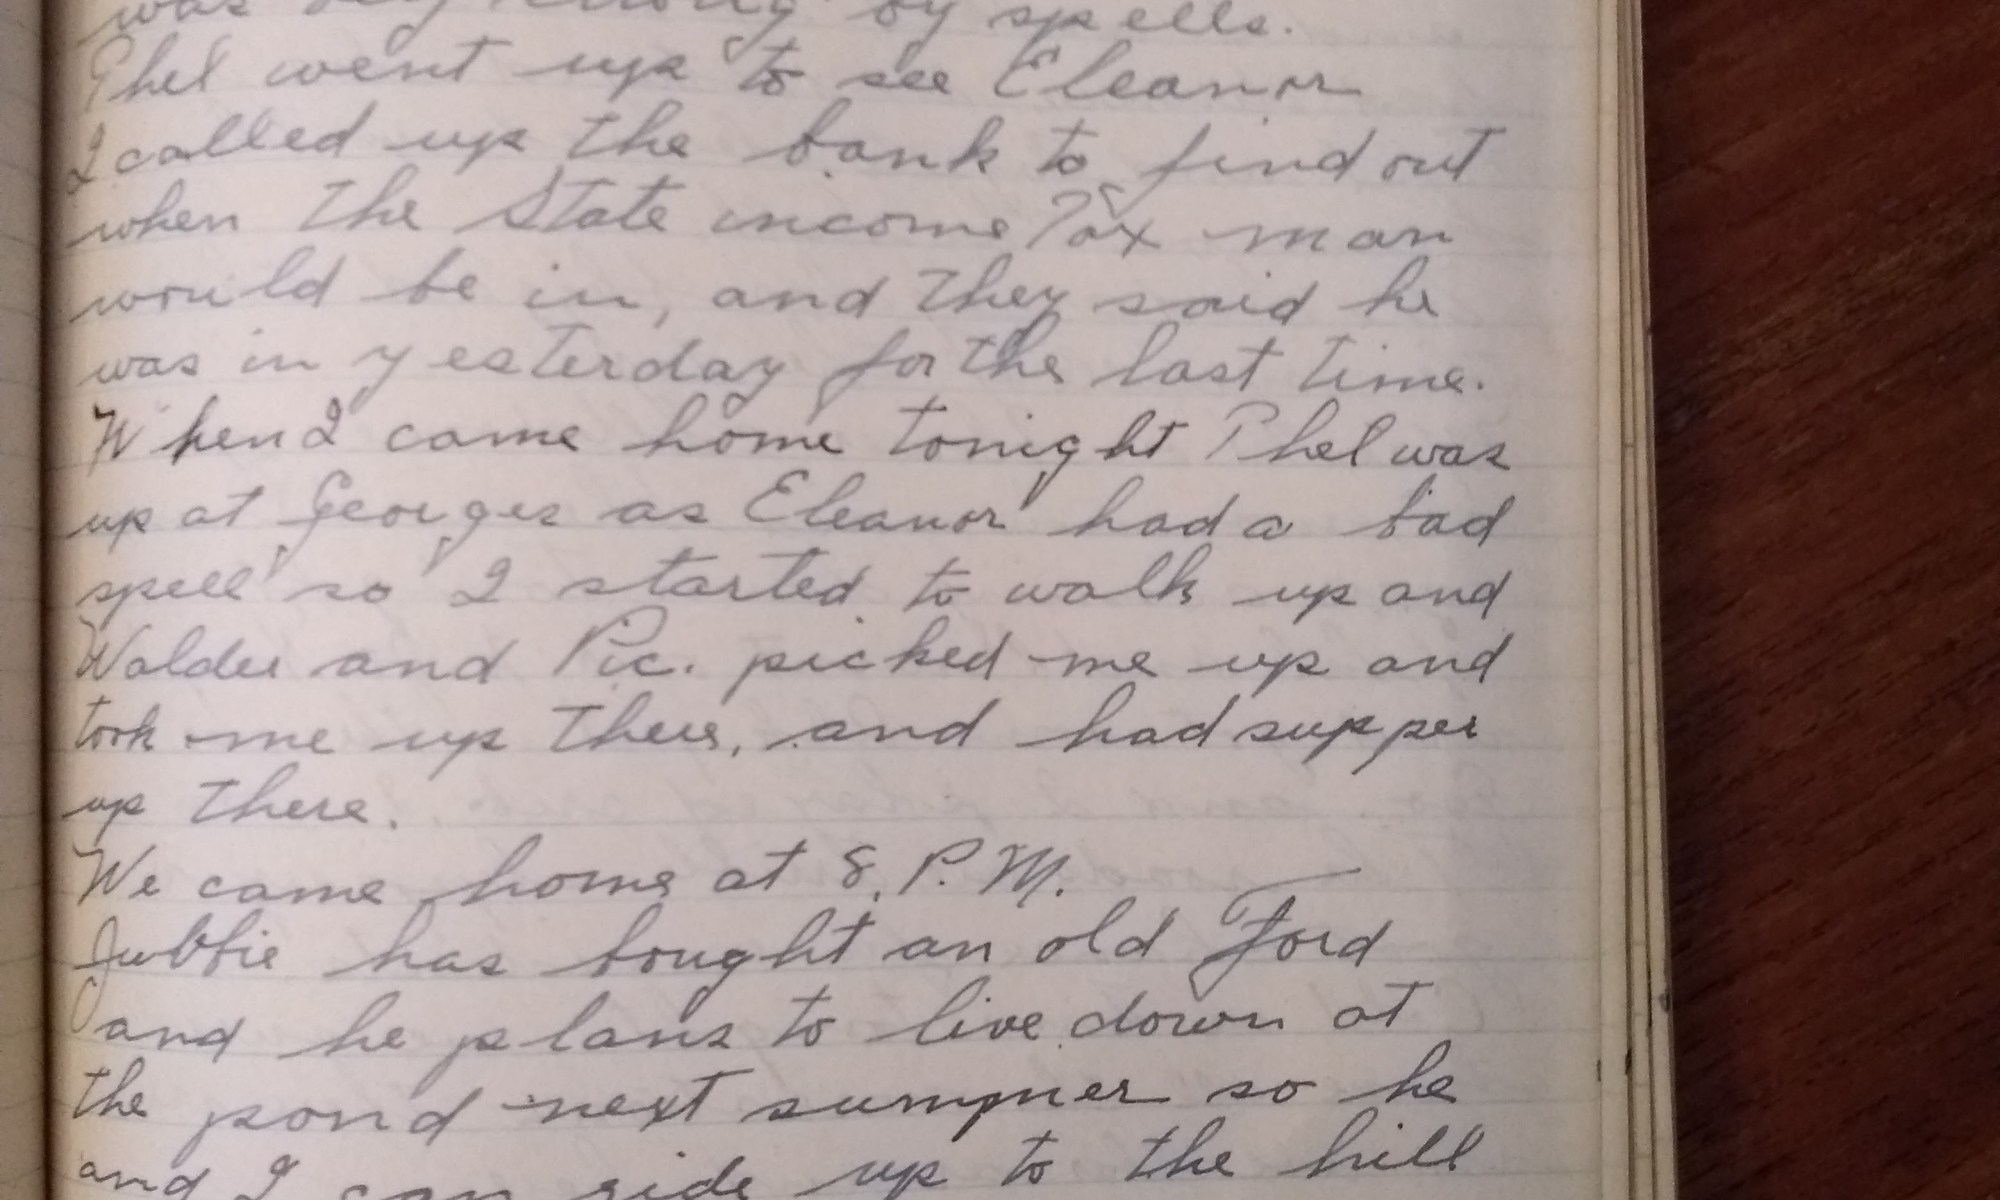 by spells.
Phel went up to see Eleanor
I called up the bank to find out
when the State income Tax man
would be in, and they said he
was in yesterday for the last time.
When I came home tonight Phel was
up at Georges as Eleanor had a bad
spell so I started to walk up and
and Pic. picked me up and
took me up there, and had supper
up there.
We came home at 8. P. M.
Jubbie has bought an old Ford
and he plans to live down at
the pond next summer so he
and I can ride up to the hill